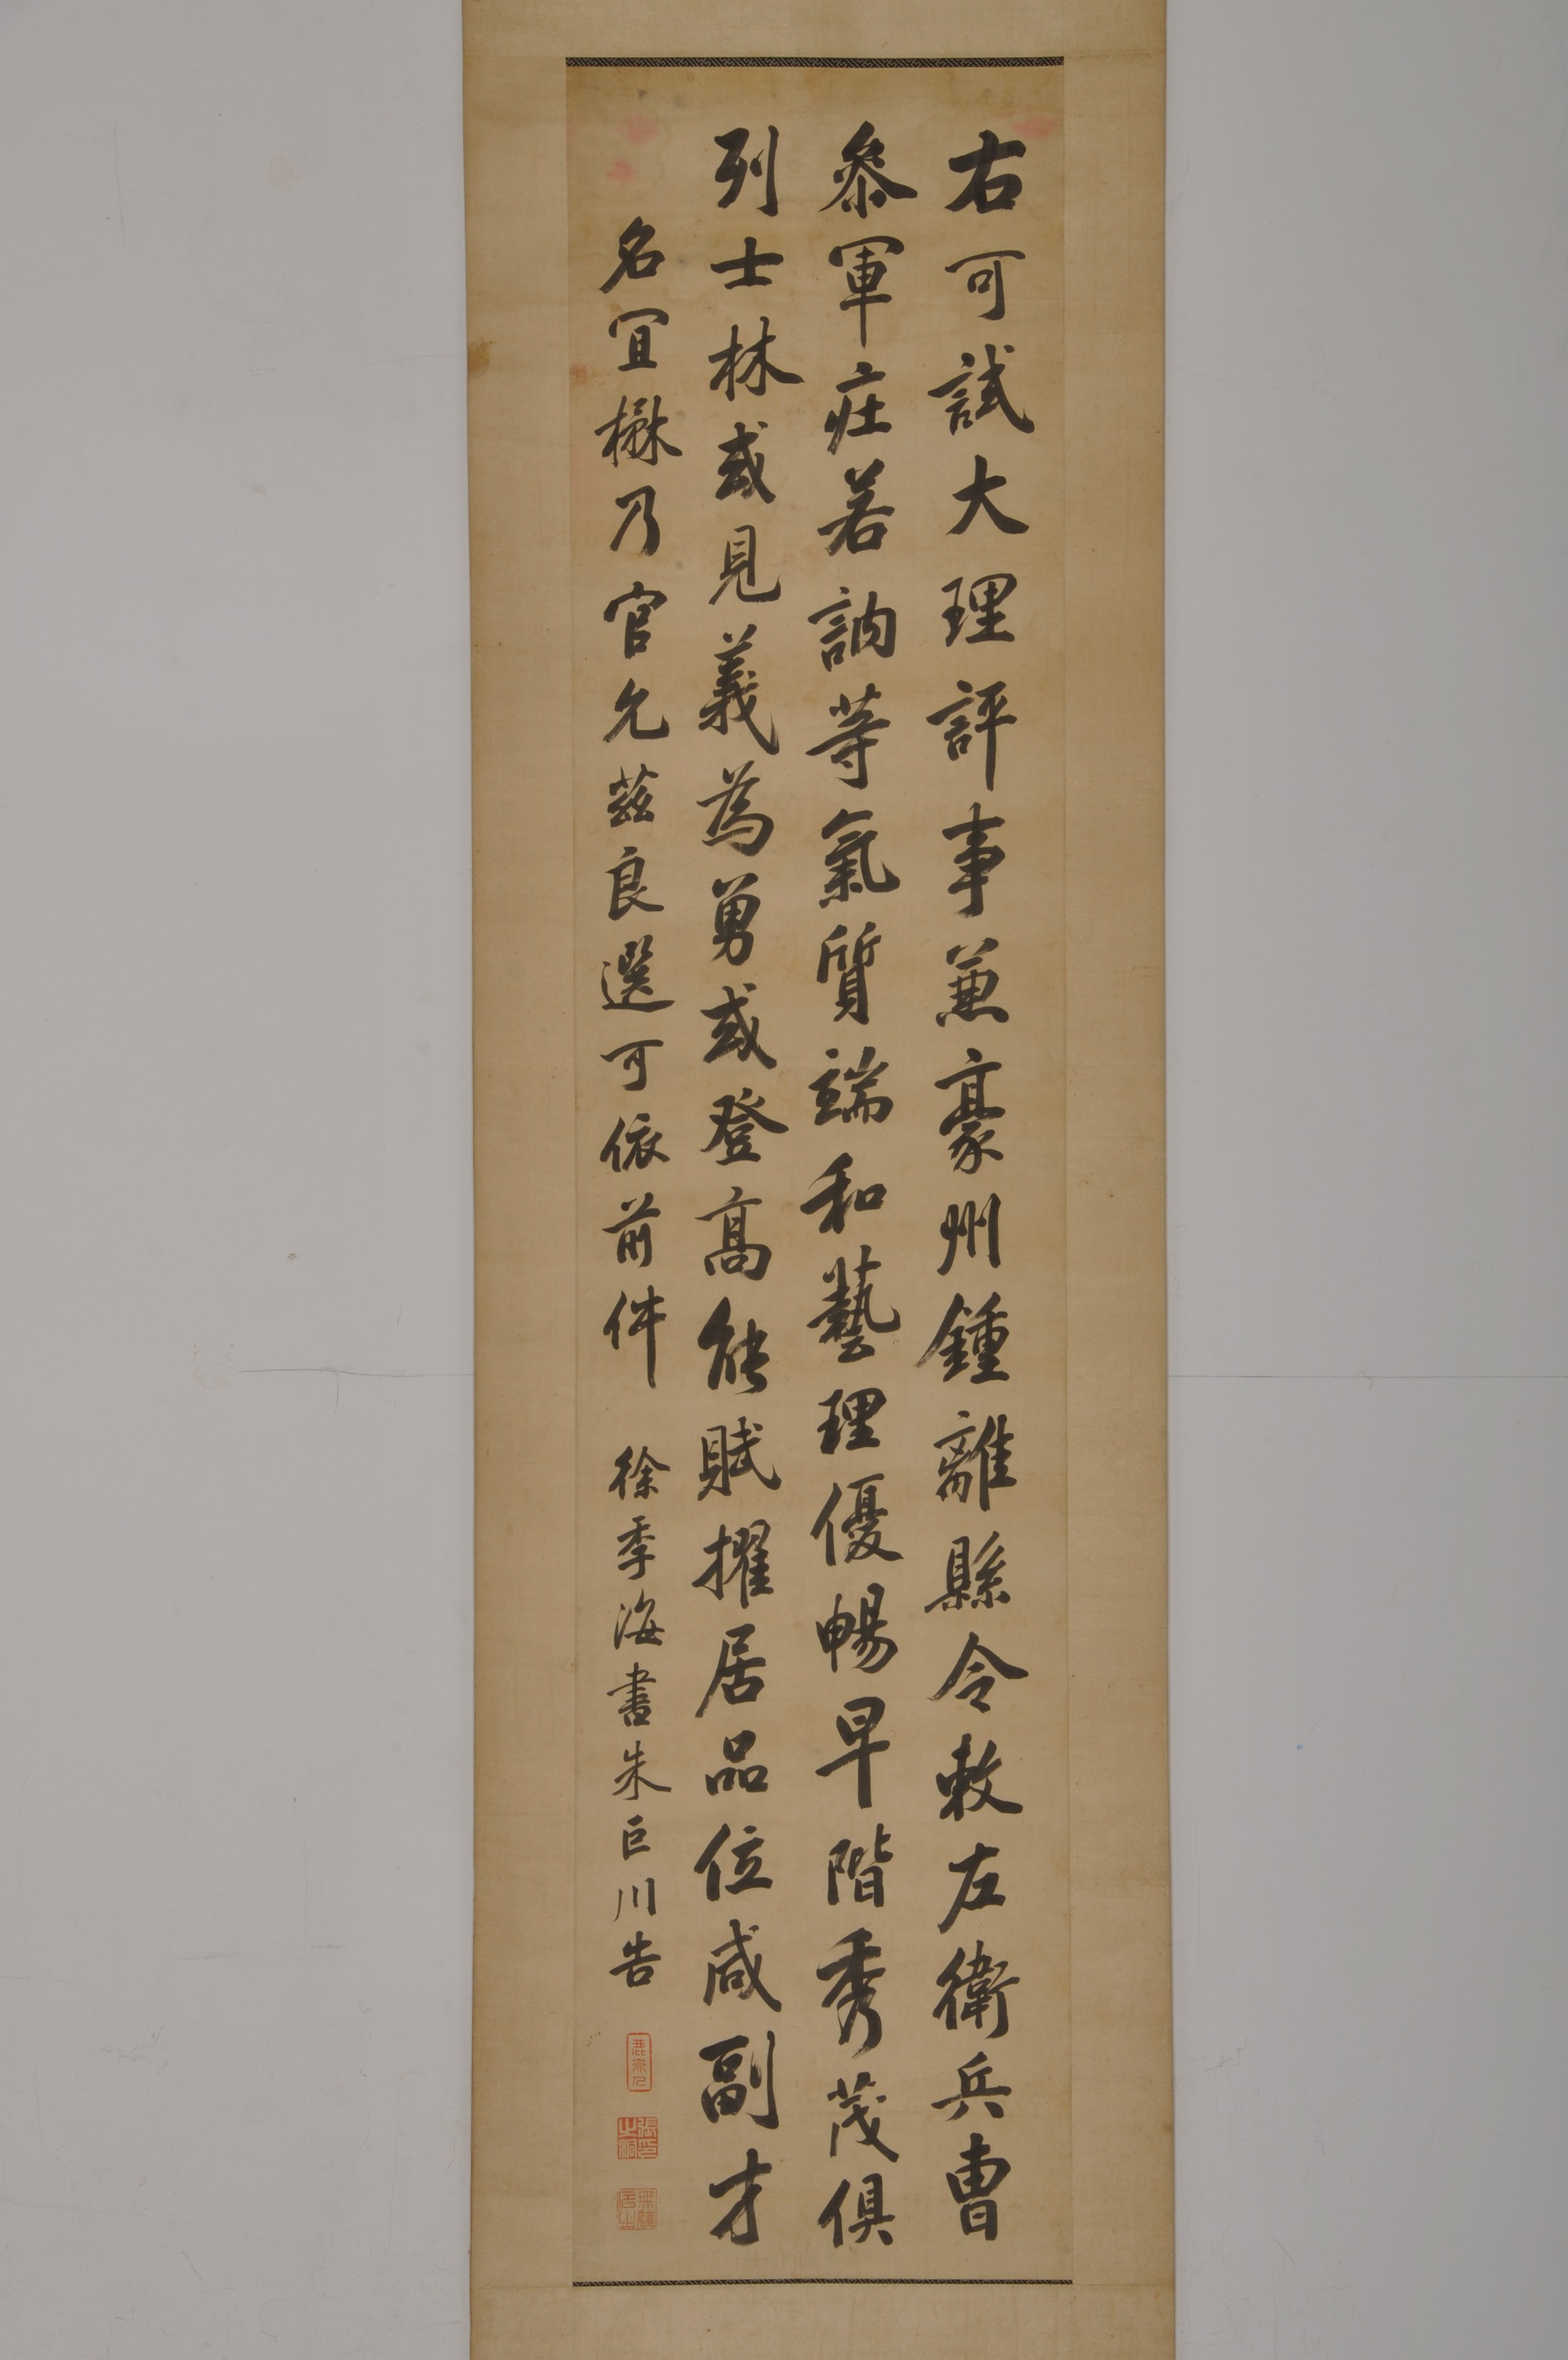 右可試大理評事兼豪州鍾離縣令敕左衛兵曹
叅軍庄若訥等氣質端和藝理優暢早階秀茂俱
列士林或見義為勇或登高能賦擢居品位咸副才
名宜楙乃官允茲良選可依前件 徐季海書朱巨川告